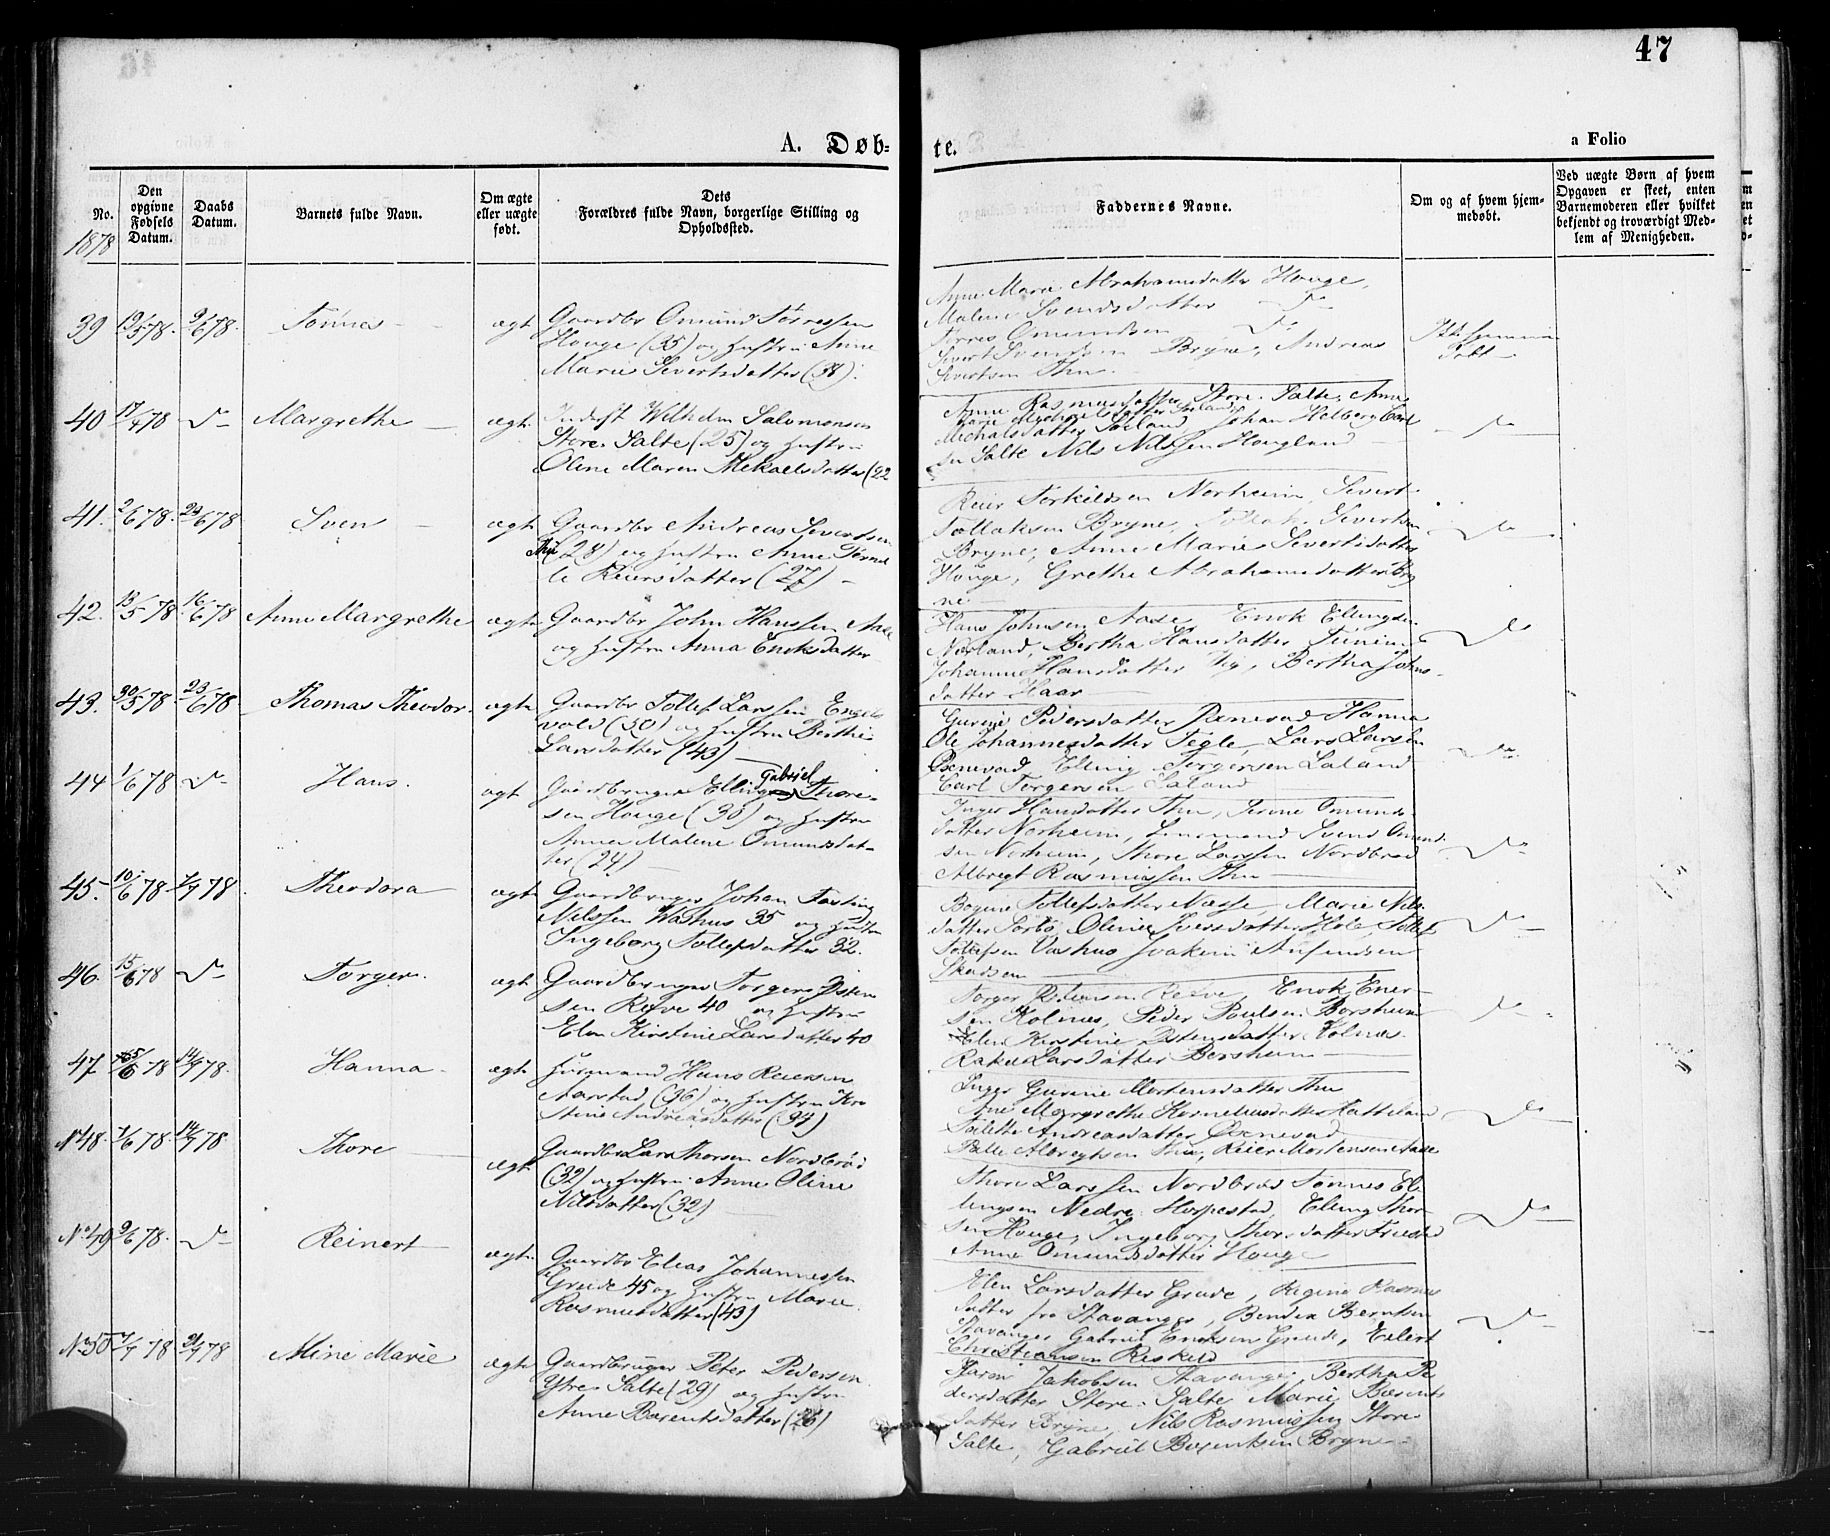 47
A. Døb-
te.
a Folio
No.
Den opgivne Fødsels Datum.
Daabs Datum.
Barnets fulde Navn.
Om ægte eller uægte født.
Dets Forældres fulde Navn, borgerlige Stilling og Opholdssted.
Faddernes Navne.
Om og af hvem hjemmedøbt.
Ved uægte Børn af hvem Opgaven er skeet, enten Barnemoderen eller hvilket bekjendt og troværdigt Medlem af Menigheden.
1878
39 19/5 78. 9/6 78. Tønnes ægt Gaardbr Omund Tørressen
Houge (35) og Hustru Anne
Marie Sivertsdatter (38).
Anne Marie Abrahamsdatter Houge,
Malene Svendsdatter
Tørres Omundsen
Sivert Svendsen Bryne, Andreas
Sivertsen Thu.
40 17/4 78 Margrethe ægt Inderst Wilhelm Salomonsen
Store Salte (25) og Hustru
Oline Maren Mekaelsdatter (22
Anne Rasmusdatter Store Salte, Anne
Nils Nilssen Hougland
41. 2/6 78. 23/6 78 Sven ægt Gaardbr Andreas Sivertsen
Thu (28) og Hustru Anne Torne
le Reiersdatter (27)
Reier Torkildsen Norheim, Sivert
Tollaksen Bryne, Tollak Sivertsen
Bryne, Anne Marie Sivertsdatter
Houge, Grethe Abrahamsdatter Bry
ne
42. 13/5 78 16/6 78 Anne Margrethe ægt Gaardbr John Hanssen Aase
og Hustru Anna Enoksdatter
Hans Johnsen Aase, Enok Ellingsen
Nærland, Bertha Hansdatter
Johanne Hansdatter Bertha Johns-
datter Haar
43. 30/5 78 23/6 78 Thomas Theodor. ægt Gaardbr Tollef Larssen Engels
vold (30) og Hustru Berthe
Larsdatter (43)
Gurine Pedersdatter Øxnevad Hanna
Ole Johannesdatter Tegle, Lars Larsen
Øxnevad Elling Torgersen Laland
Carl Torgersen Laland
44 1/6 78 Hans. ægt Gaardbruger Elling Gabriel Thore-
sen Houge (30) og Hustru
Anne Malene Omundsdat-
ter (24)
Inger Hansdatter Thu, Serine Omunds-
datter Norheim, Svend Omund-
sen Norheim, Thore Larssen Nordbrød
Albregt Rasmussen Thu
45. 10/6 78 7/7 78 Theodora ægt Gaardbruger Johan Fasting
Nilssen Vashus 35 og Hustru
Ingeborg Tollefsdatter 32.
Bogine Tollefsdatter Næsse, Marie Nils-
datter Sørbø, Oline Iversdatter Hole, Tollef
Tollefsen Vashus Joakim
46. 15/6 78 Torger. ægt Gaardbruger Torger Østen
sen Refve 40 og Hustru
Elen Kirstine Larsdatter 40
Torger Østensen Refve, Enok Ener-
sen Holnæs, Peder Poulsen Borsheim
Elen Kirstine Østensdatter Holnæs.
Rakel Larsdatter Borsheim
47. 78 14/7 78. Hanna. ægt Huusmand Hans Reiersen
Aarstad (36) og Hustru Kir
stine Andreasdatter (34)
Inger Gurine Mortensdatter Thu
Ane Margrethe Kornelius datter Hatteland
Andreasdatter Øxnevad
Palle Albregtsen Thu, Reier Mortensen Aase
No 48. 7/6 78 14/7 78. Thore ægt Gaardbr Lars Thorsen Nordbrød
(32) og Hustru Anne Oline
Nilsdatter (32)
Thore Larssen Nordbrød Tønnes El-
lingsen Nedre Herpestad, Elling Thor-
sen Houge, Ingeborg Thorsdatter Friestad
Anne Omundsdatter Houge
No. 49 9/6 78. Reinert ægt Gaardbr Elias Johannessen
Grude 45 og Hustru Marie
Rasmusdatter (43)
Elen Larsdatter Grude, Regine Rasmus
datter fra Stavanger, Bendix Berntsen
Stavanger Gabriel Eriksen Grude, Eilert
Christiansen Reskeld
No. 50 7/7 78 21/7 78 Mine Marie ægt Gaardbruger Peter Pedersen
Ytre Salte (29) og Hustru
Anne Barentsdatter (26)
Jakobsen Stavanger, Bertha Pe
dersdatter Store Salte Marie Barents
datter Bryne, Nils Rasmussen Store
Salte, Gabriel Barentsen Bryne